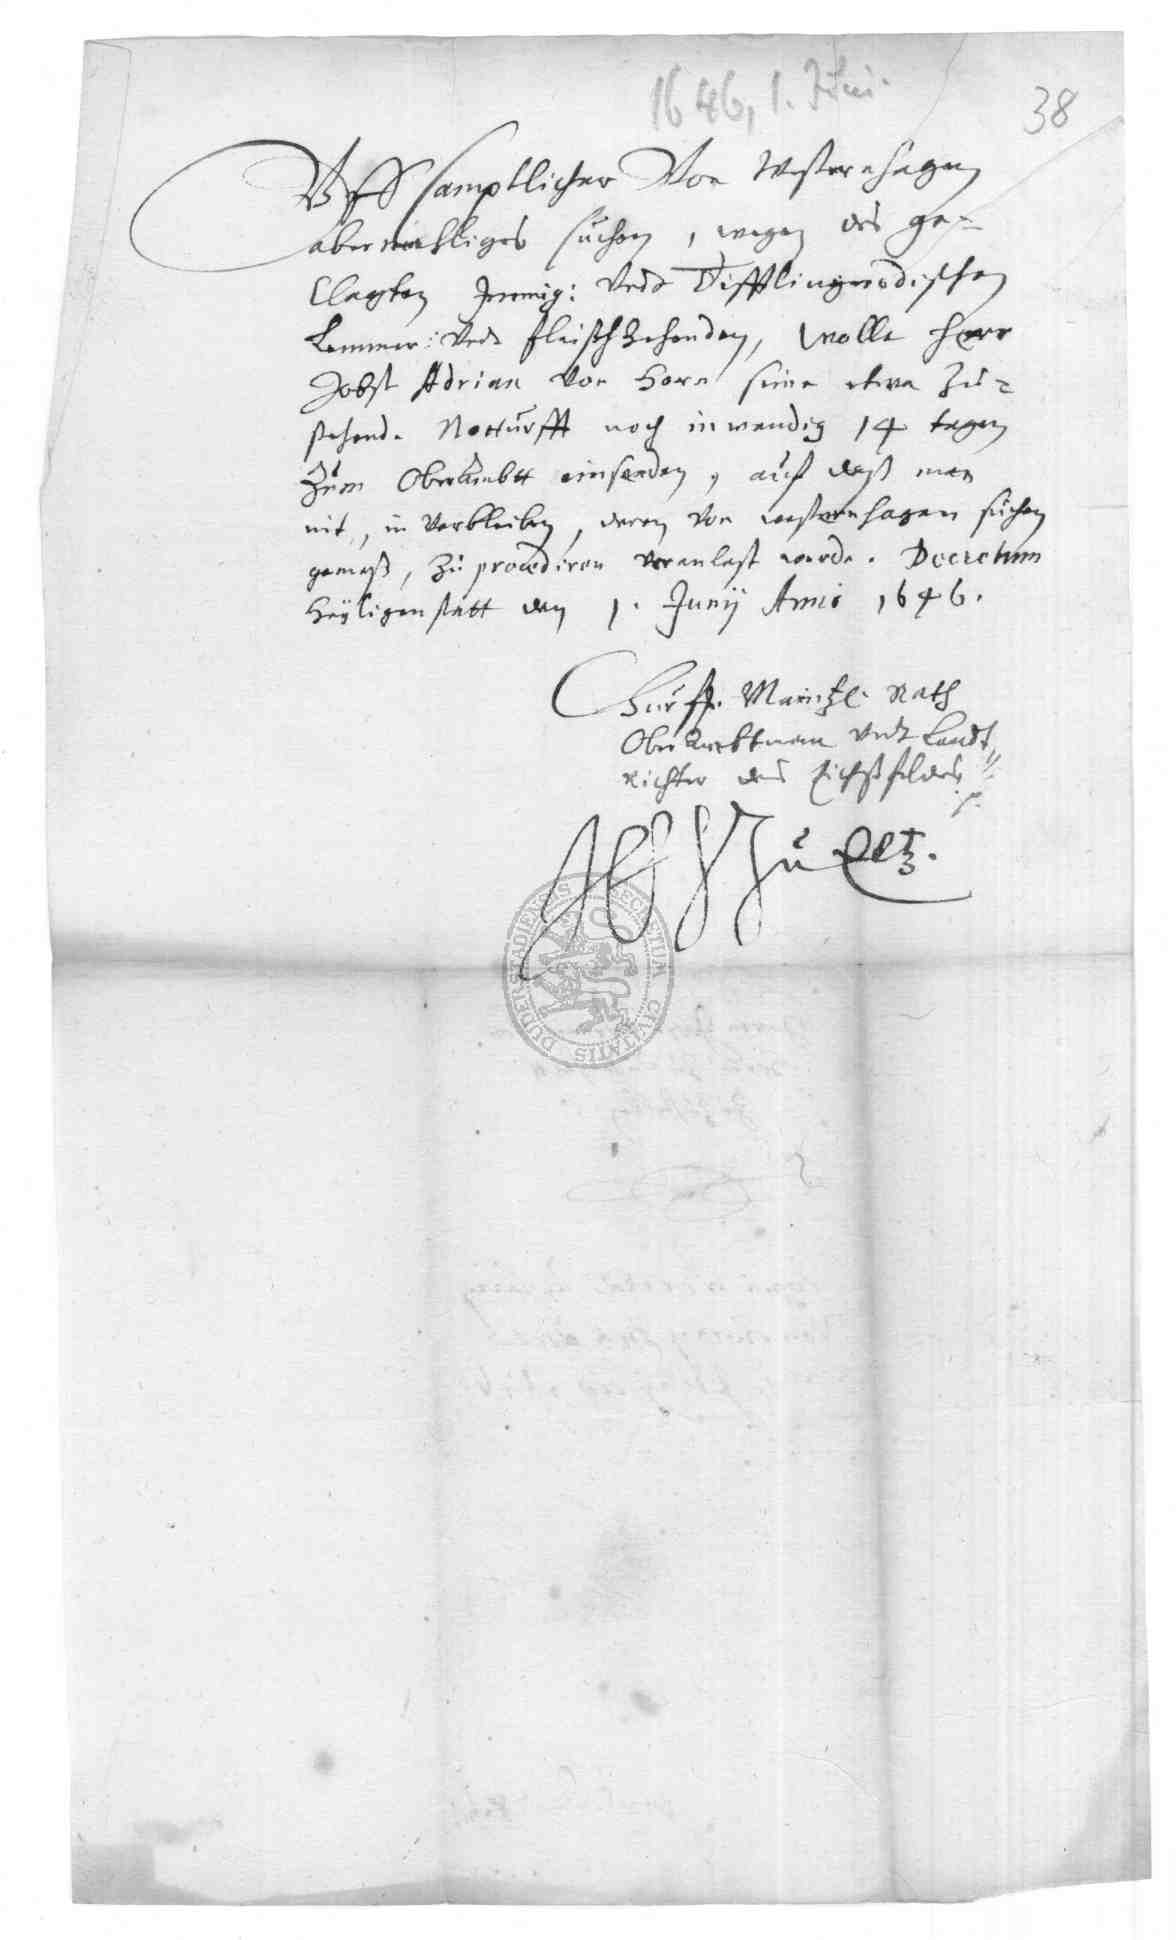 1646, 1. Juni.
38
Uff samptlicher Von Westernhagen
abermahliges suchen, wegen des ge-
clagten Immig: Undt Tifftlingerodischen
Lemmer: Undt fleischzehenden, wolle Herr
Jobst Adrian von Horn seine etwa zu-
stehende Notturfft noch inwendig 14 tagen
Zum Oberambtt einsenden, auf daß man
nit, in verbleiben, deren von westernhagen suchen
gemeß, zu procediren veranlast werde. Decretum
Heyligenstatt den 1. Junij Anno 1646.
Churf. Maintzl. Rath
Ober Ambtman Undt Landt
Richter des Eichßfeldes
DUDERSTADIENSIS SECRETUM CIVITATIS